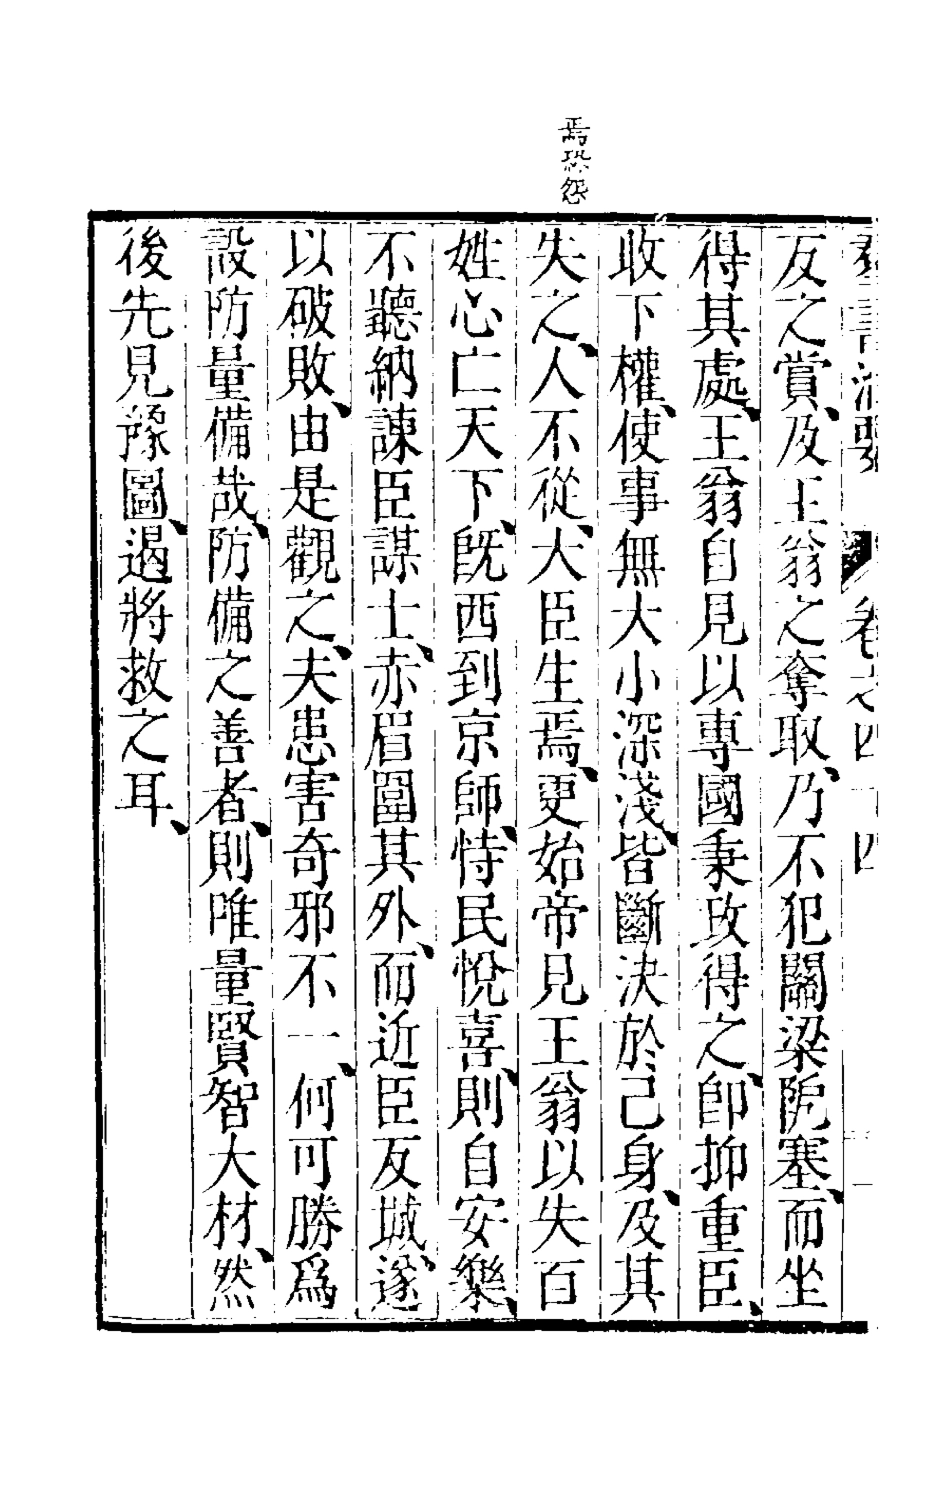 焉恐怨
羣書治要 卷之四十四
反之賞、及王翁之奪取、乃不犯關梁阸塞、而坐
得其處、王翁自見以專國秉政得之、卽抑重臣、
收下權、使事無大小深淺、皆斷決於己身、及其
失之、人不從、大臣生焉、更始帝見王翁以失百
姓心亡天下、旣西到京師、恃民悅喜、則自安樂、
不聽納諫臣謀士、赤眉圍其外、而近臣反城、遂
以破敗、由是觀之、夫患害奇邪不一、何可勝爲
設防量備哉、防備之善者、則唯量賢智大材、然
後先見豫圖、遏將救之耳、